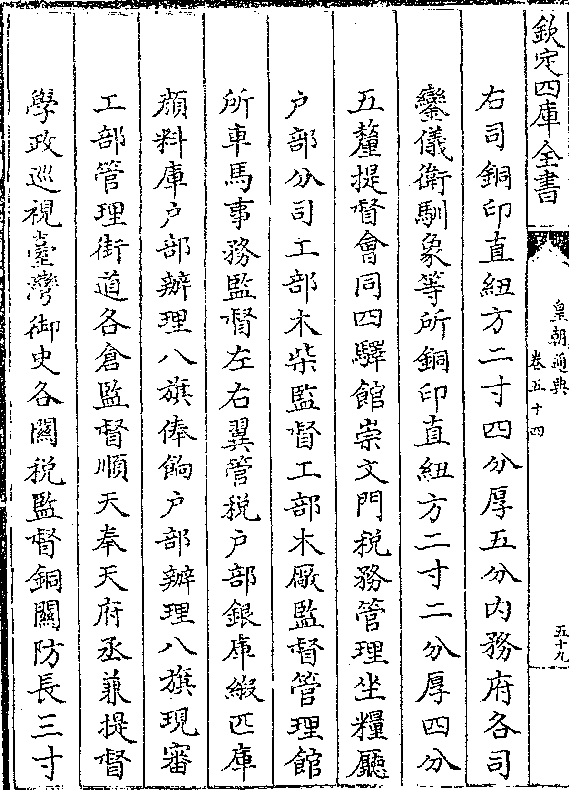 欽定四庫全書
皇朝通典
卷五十四
五十九
右司銅印直紐方二寸四分厚五分内務府各司
鑾儀衛馴象等所銅印直紐方二寸二分厚四分
五釐提督會同四驛館崇文門税務管理坐糧廳
户部分司工部木柴監督工部木厰監督管理館
所車馬事務監督左右翼管税户部銀庫緞匹庫
顔料庫户部辦理八旗俸餉户部辦理八旗現審
工部管理街道各倉監督順天奉天府丞兼提督
學政巡視臺灣御史各關税監督銅關防長三寸